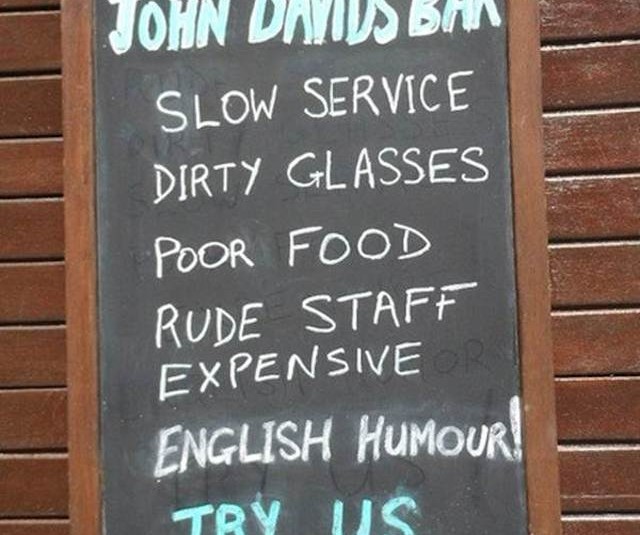 JOHN DAVIDS BAR
SLOW SERVICE
DIRTY GLASSES
POOR FOOD
RUDE STAFF
EXPENSIVE
ENGLISH HUMOUR!
TRY US